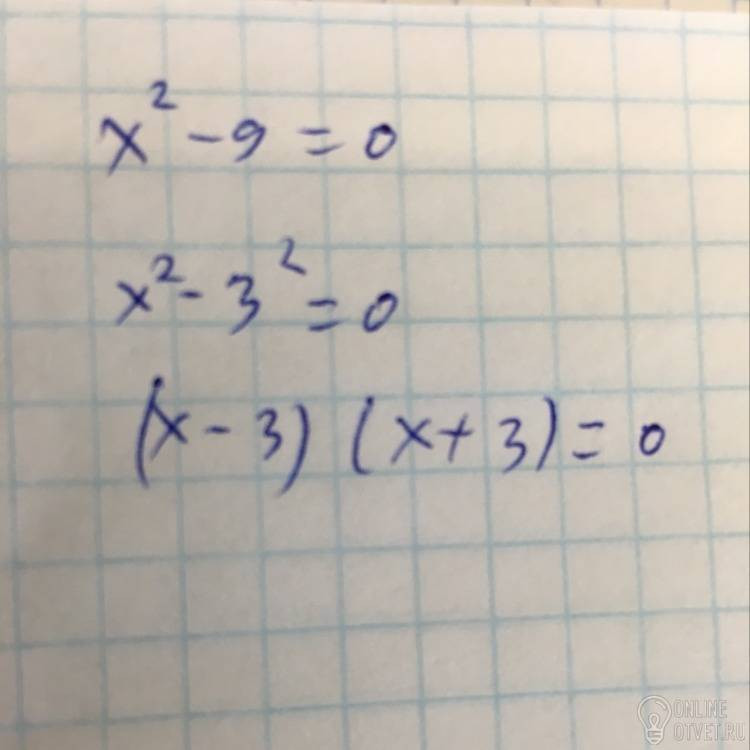 x² - 9 = 0
x² - 3² = 0
(x - 3) (x + 3) = 0
ONLINE
OTVET.RU